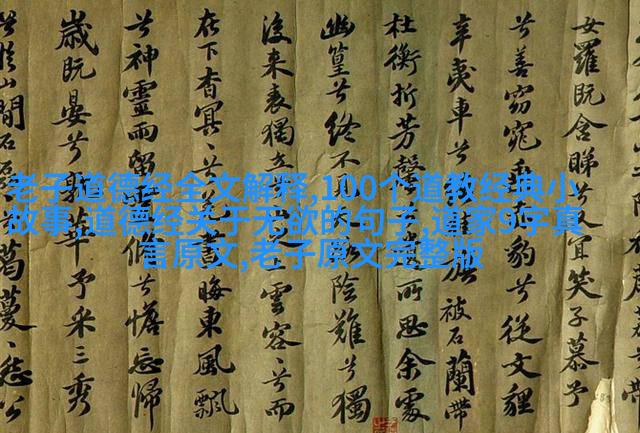 老子道德经全文解释,100个道教经典小
故事,道德经关于无欲的句子,道家9字真
言原文,老子原文完整版
女羅既含睇兮宜笑子慕予
兮善窈窕乘豹兮從文貍
辛夷車兮旗被石蘭帶
杜衡折芳馨所思余處
幽篁兮終不險難兮獨
後來表獨立雲容容兮而
在下杳冥冥晝晦東風飄
兮神靈雨留兮憺忘歸
歲既晏兮孰華予采三秀
山間石磊葛蔓蔓怨公